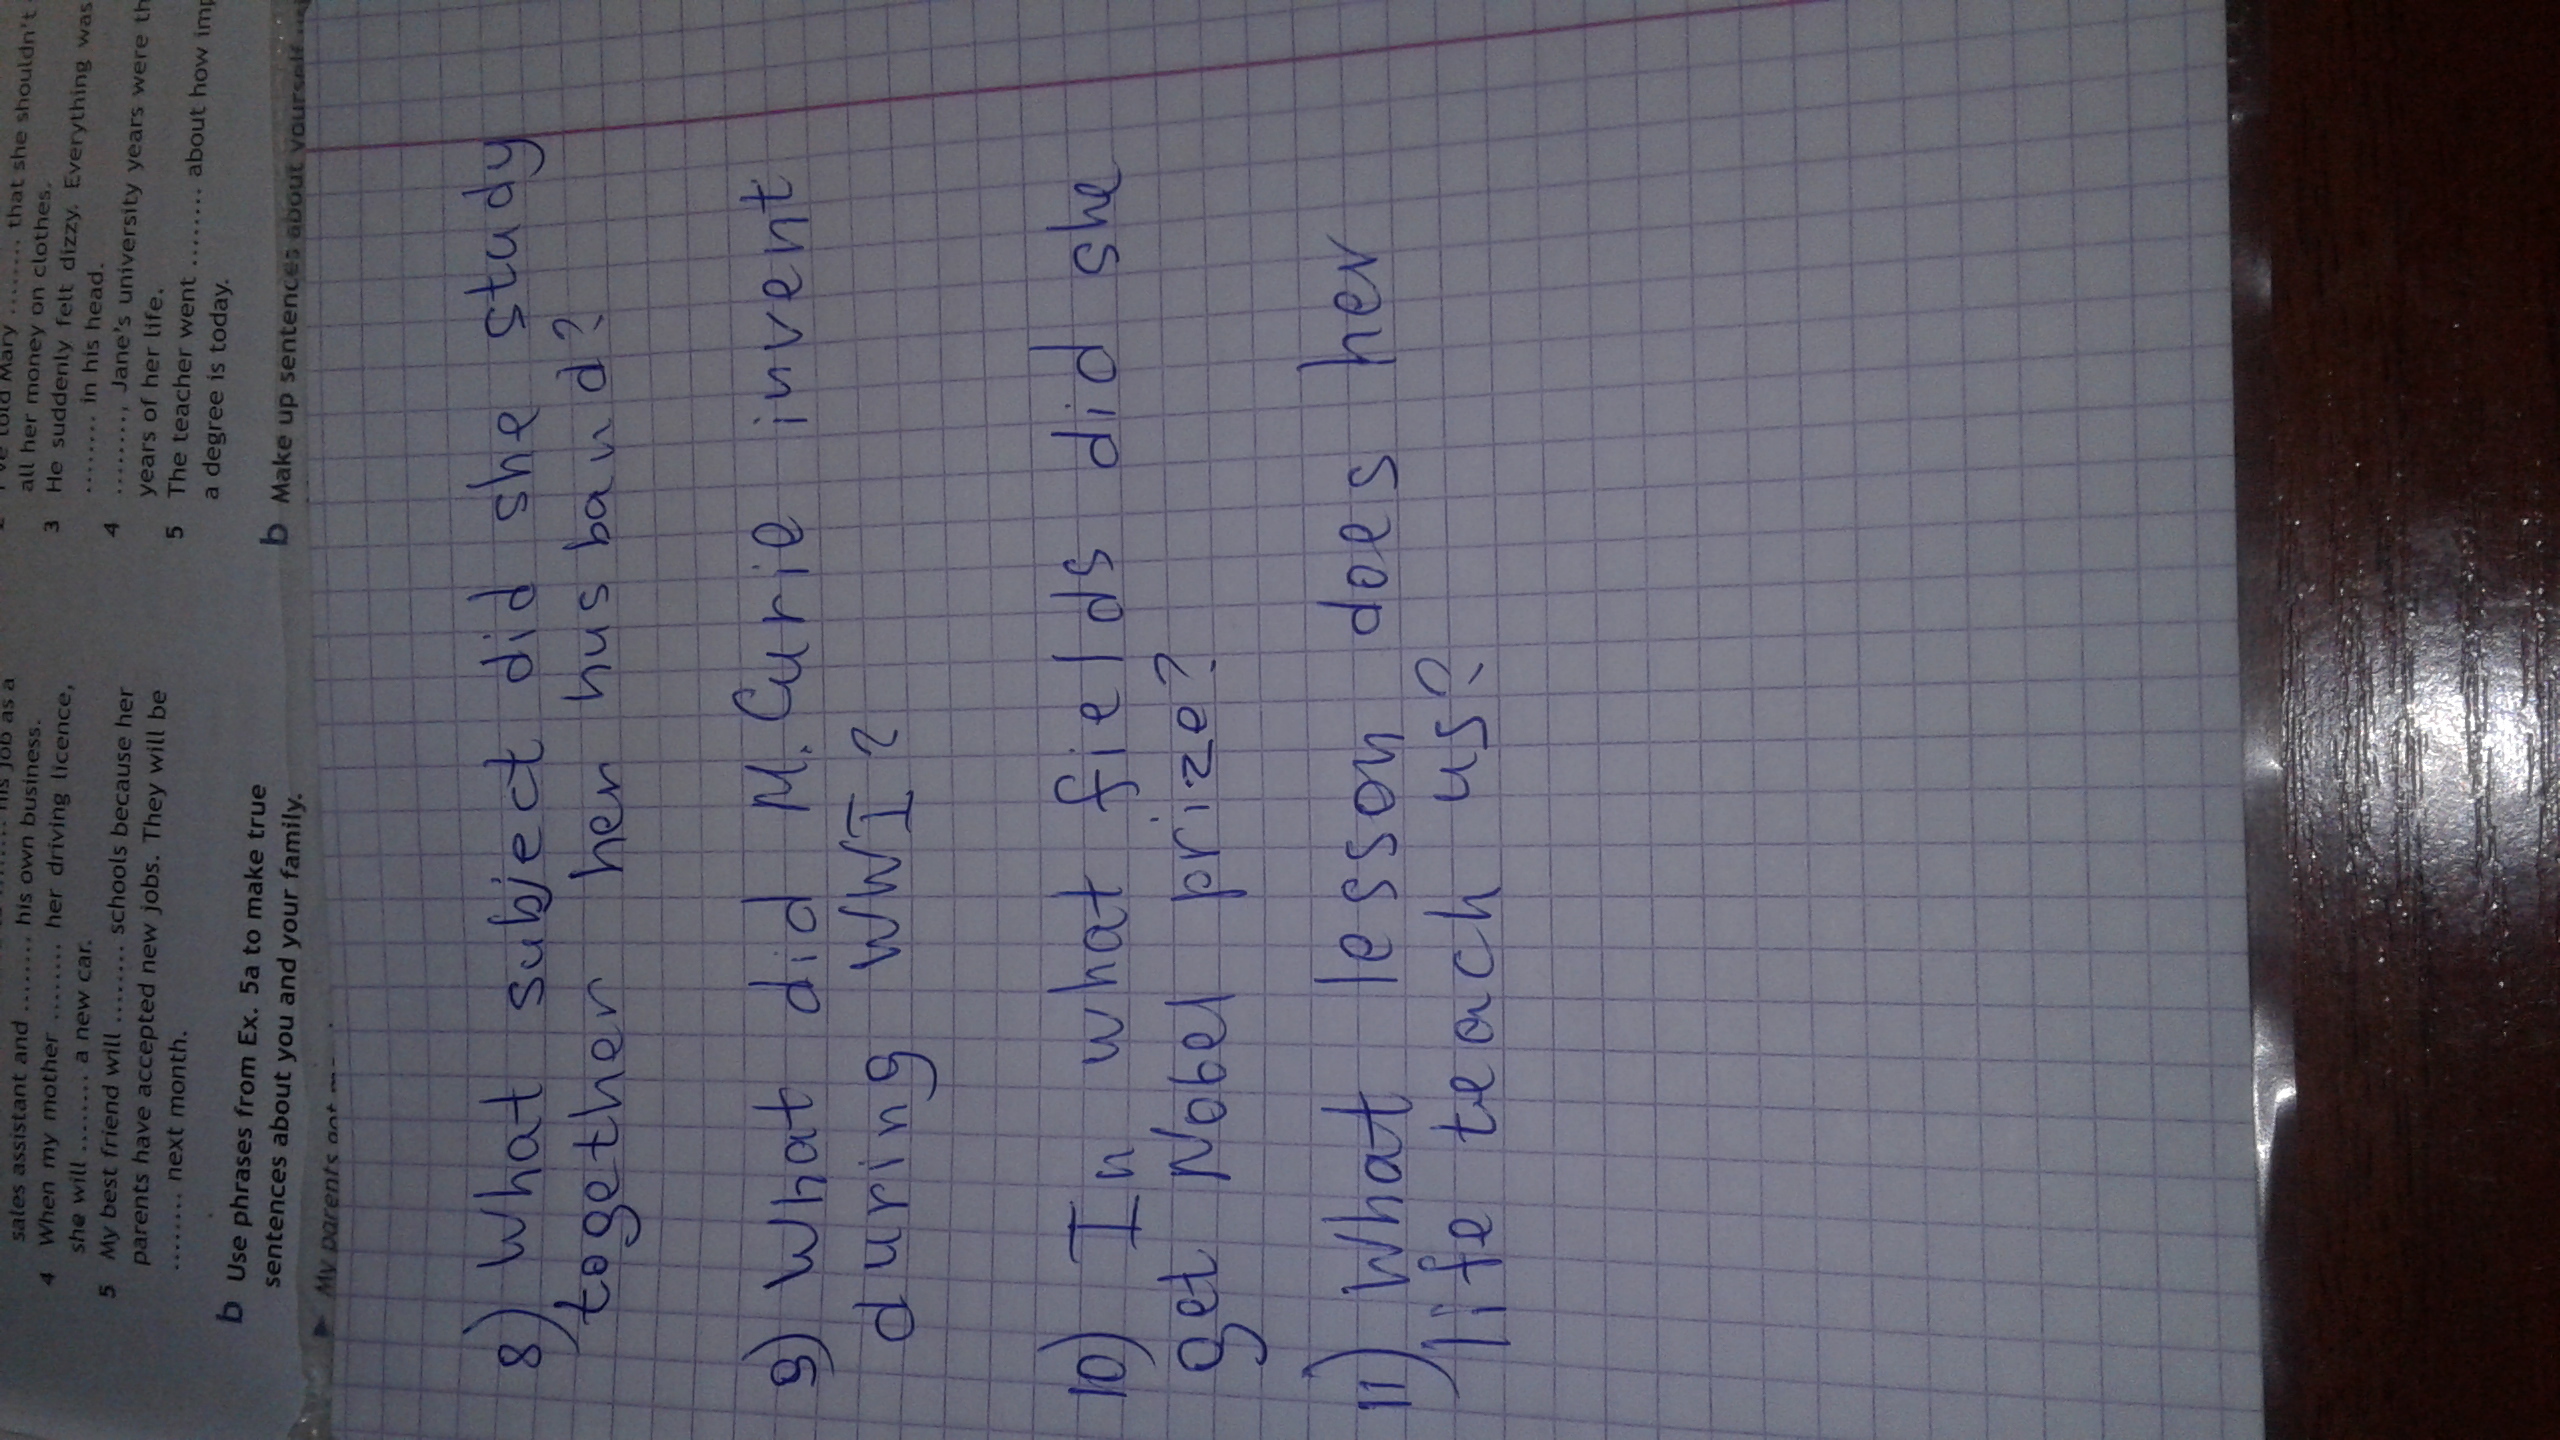 sales assistant and ........ his own business.
4 When my mother ........ her driving licence,
she will ........ a new car.
5 My best friend will ........ schools because her
parents have accepted new jobs. They will be
........ next month.
b Use phrases from Ex. 5a to make true
sentences about you and your family.
My parents got
told Mary ........ that she shouldn't
all her money on clothes.
3 He suddenly felt dizzy. Everything was
........ in his head.
4 ........, Jane's university years were
years of her life.
5 The teacher went ........ about how
a degree is today.
b Make up sentences about yourself
8) What subject did she study
together her husband?
9) What did M. Curie invent
during WWI?
10) In what fields did she
get Nobel prize?
11) What lesson does her
life teach us?